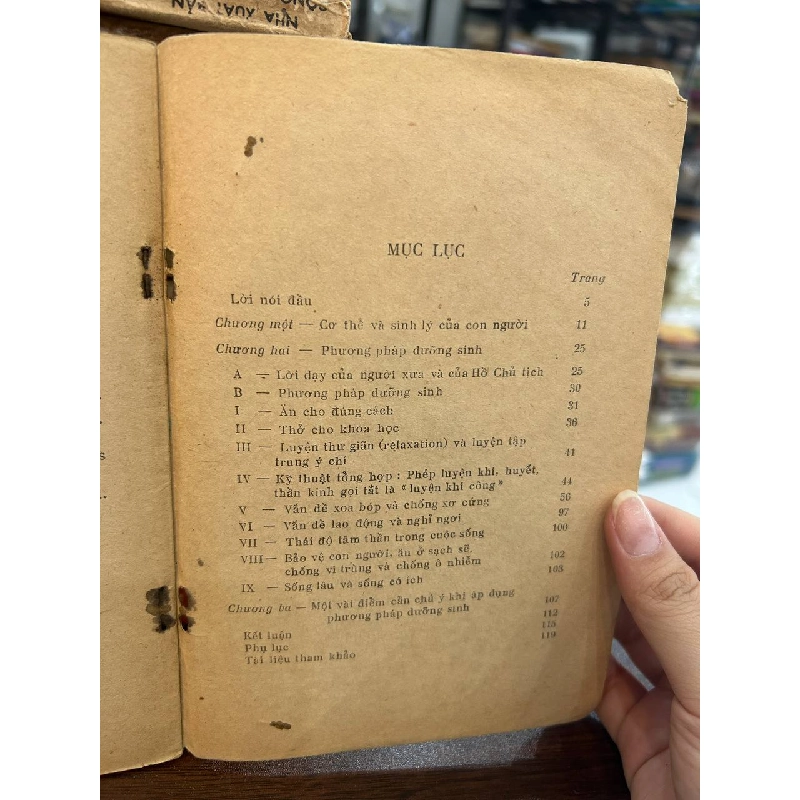 NHÀ XUẤT BẢN
MỤC LỤC
Trang
Lời nói đầu 5
Chương một — Cơ thể và sinh lý của con người 11
Chương hai — Phương pháp dưỡng sinh 25
A — Lời dạy của người xưa và của Hồ Chủ tịch 25
B — Phương pháp dưỡng sinh 30
I — Ăn cho đúng cách 31
II — Thở cho khoa học 36
III — Luyện thư giãn (relaxation) và luyện tập
trung ý chí 41
IV — Kỹ thuật tổng hợp : Phép luyện khí, huyết,
thần kinh gọi tắt là “luyện khí công” 44
V — Vấn đề xoa bóp và chống xơ cứng 56
VI — Vấn đề lao động và nghỉ ngơi 97
VII — Thái độ tâm thần trong cuộc sống 100
VIII — Bảo vệ con người, ăn ở sạch sẽ,
chống vi trùng và chống ô nhiễm 102
IX — Sống lâu và sống có ích 105
Chương ba — Một vài điểm cần chú ý khi áp dụng
phương pháp dưỡng sinh 107
Kết luận 112
Phụ lục 115
Tài liệu tham khảo 119